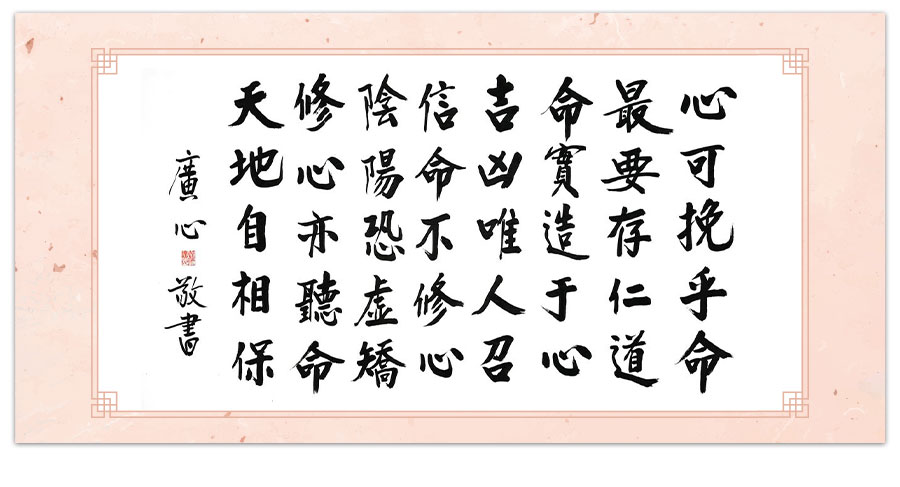 心可挽乎命
最要存仁道
命實造于心
吉凶唯人召
信命不修心
陰陽恐虛矯
修心亦聽命
天地自相保
廣心 敬書